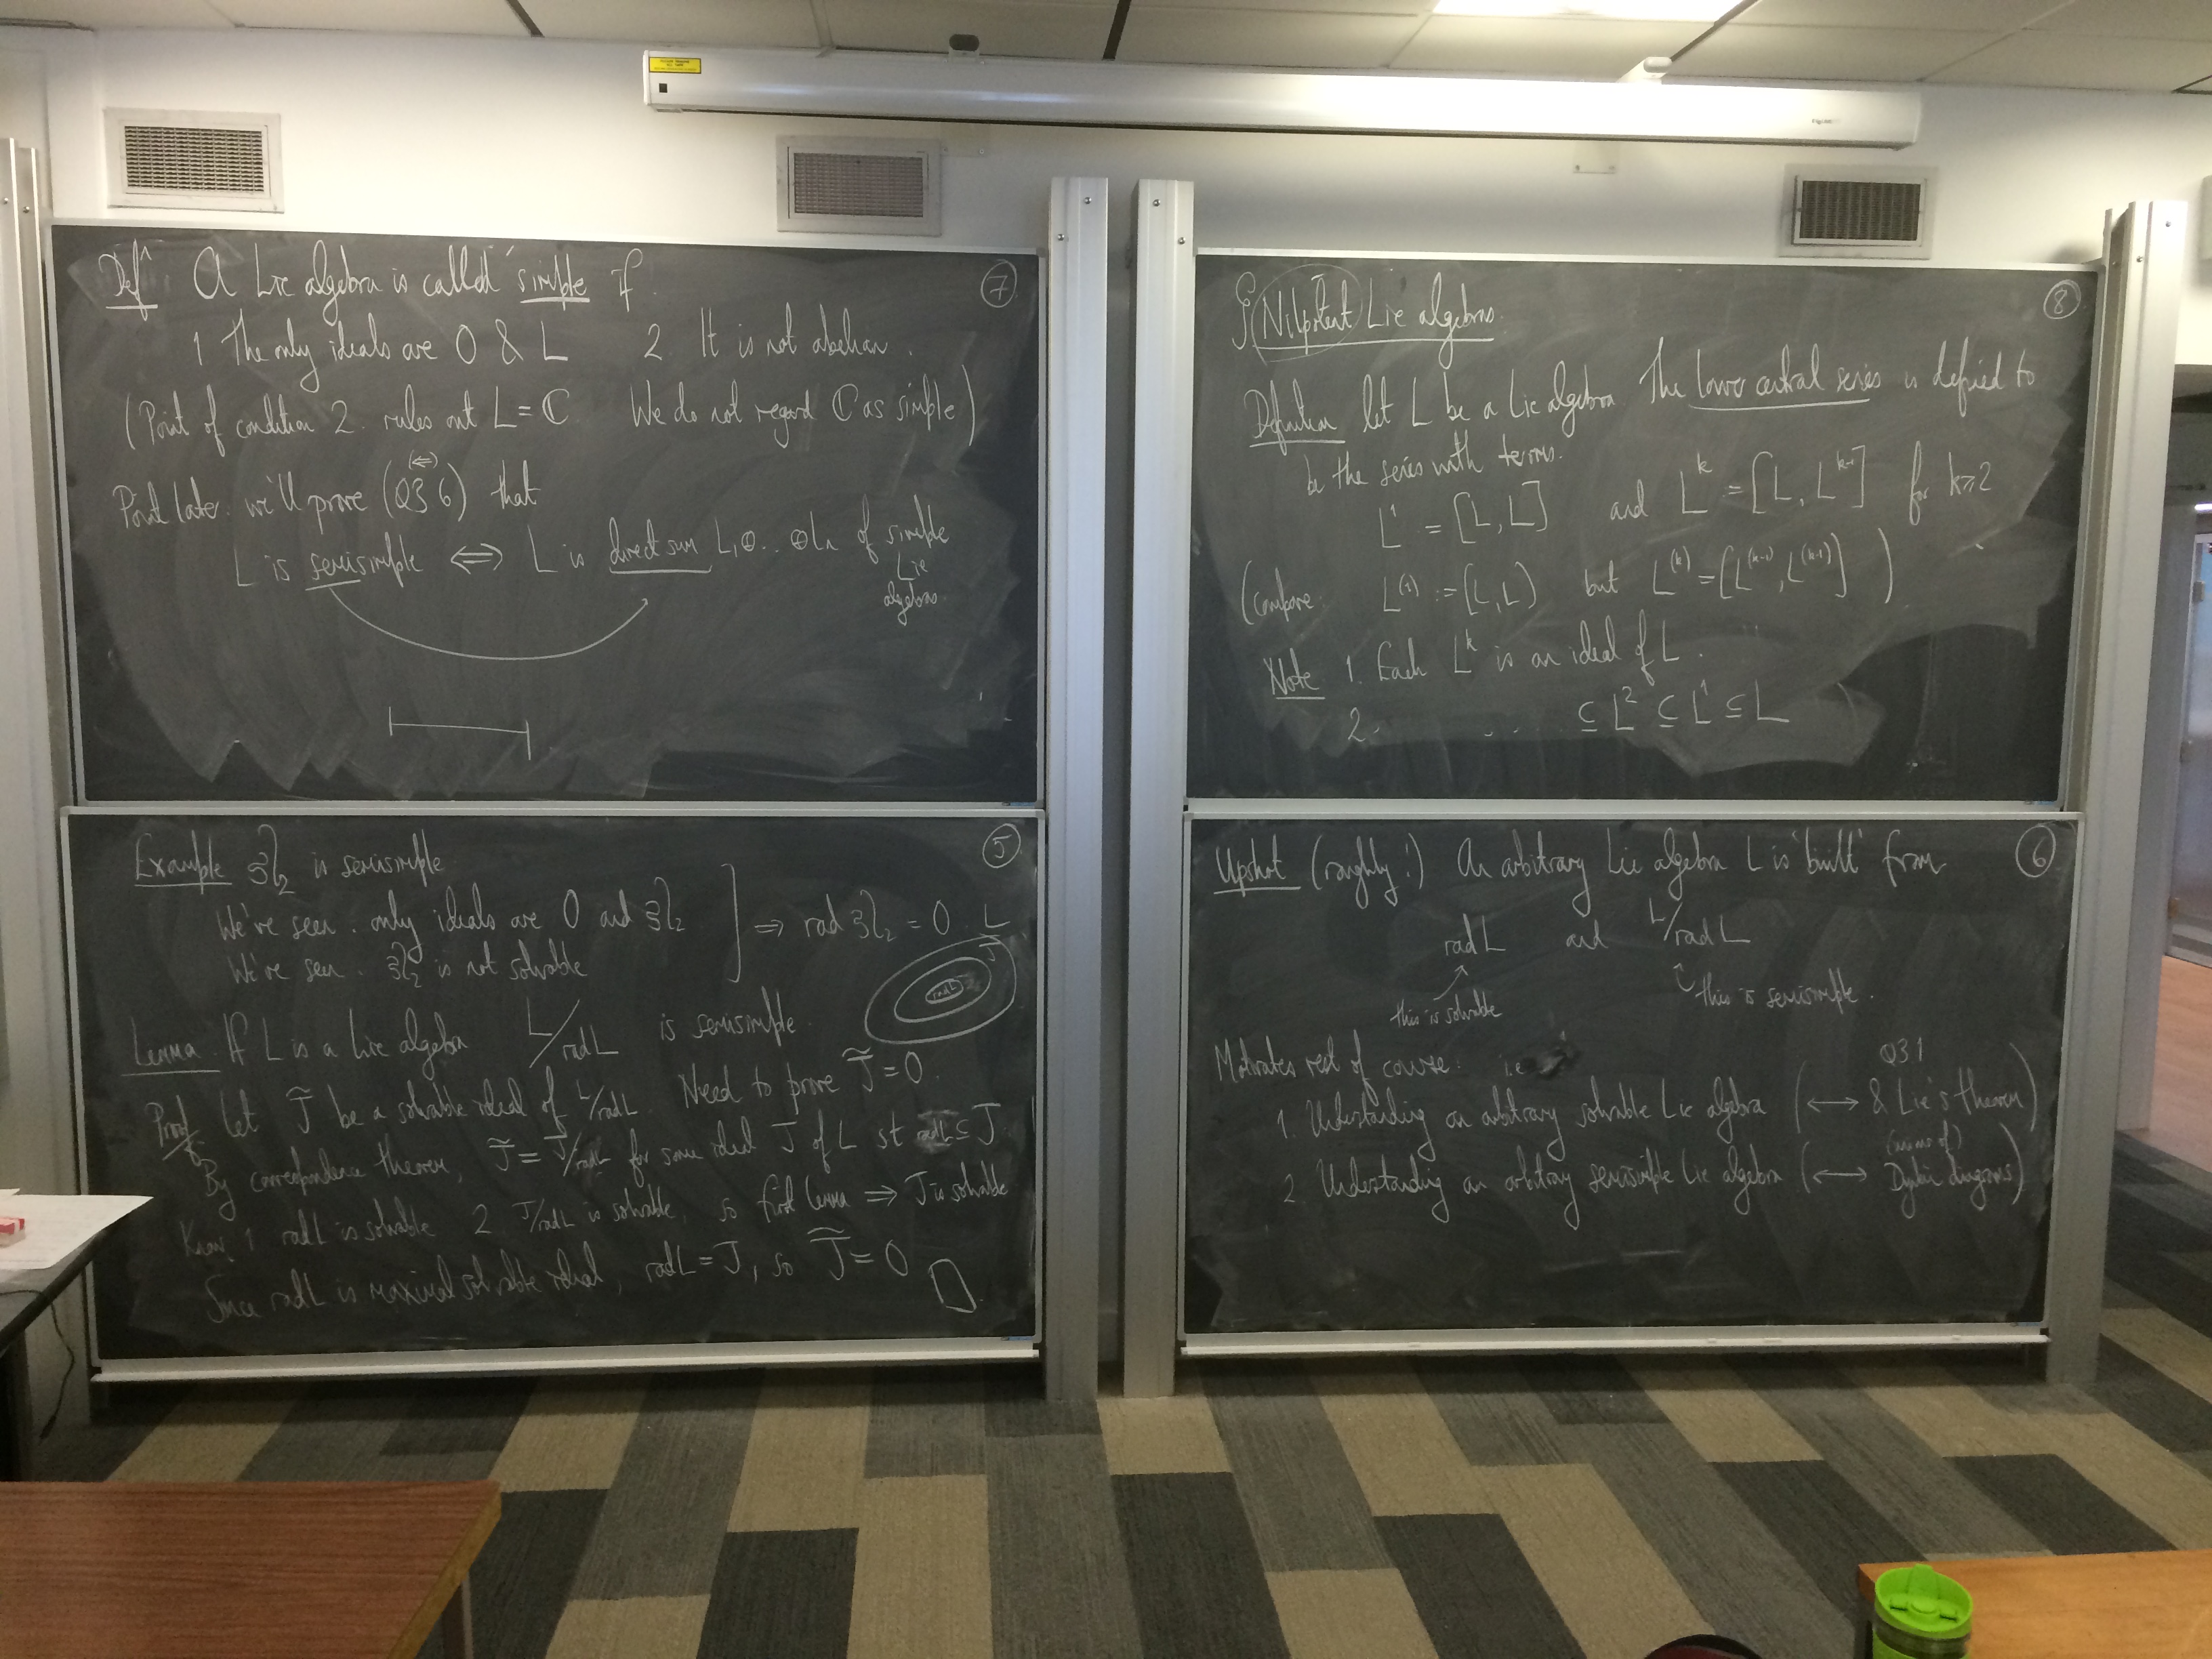 Defⁿ. A Lie algebra is called 'simple if
⑦
1 The only ideals are 0 & L 2. It is not abelian.
(Point of condition 2. rules out L = ℂ We do not regard ℂ as simple)
(⇐)
Point later. we'll prove (Q36) that
L is semisimple ⟺ L is direct sum L₁⊕...⊕Lₙ of simple
Lie
algebras.
§ Nilpotent Lie algebras.
⑧
Definition let L be a Lie algebra The lower central series is defined to
be the series with terms.
L¹ = [L, L] and Lᵏ = [L, Lᵏ⁻¹] for k⩾2
(compare L⁽¹⁾ := [L, L] but L⁽ᵏ⁾ = [L⁽ᵏ⁻¹⁾, L⁽ᵏ⁻¹⁾])
Note 1. Each Lᵏ is an ideal of L.
2. . . . ⊆ L² ⊆ L¹ ⊆ L
Example 𝔰𝔩₂ is semisimple
⑤
We've seen. only ideals are 0 and 𝔰𝔩₂
We've seen. 𝔰𝔩₂ is not solvable
⇒ rad 𝔰𝔩₂ = 0.
L
J
rad L
Lemma. If L is a Lie algebra L/rad L is semisimple.
Proof Let J̃ be a solvable ideal of L/rad L. Need to prove J̃ = 0.
By correspondence theorem, J̃ = J/rad L for some ideal J of L st rad L ⊆ J
Know 1 rad L is solvable 2 J/rad L is solvable, so first lemma ⇒ J is solvable
Since rad L is maximal solvable ideal, rad L = J, so J̃ = 0 □
Upshot (roughly!) An arbitrary Lie algebra L is 'built' from
⑥
rad L and L/rad L
this is solvable
this is semisimple.
Motivates rest of course: i.e
Q31
1. Understanding an arbitrary solvable Lie algebra (⟷ & Lie's theorem)
2. Understanding an arbitrary semisimple Lie algebra (⟷ Dynkin diagrams)